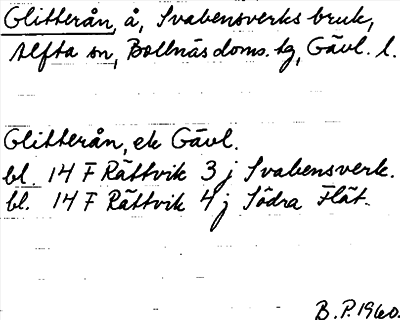 Glitterån, å, Svabensverks bruk,
Alfta sn, Bollnäs doms. tg, Gävl. l.
Glitterån, ek Gävl.
bl. 14 F Rättvik 3 j Svabensverk.
bl. 14 F Rättvik 4 j Södra Flät.
B. P. 1960.